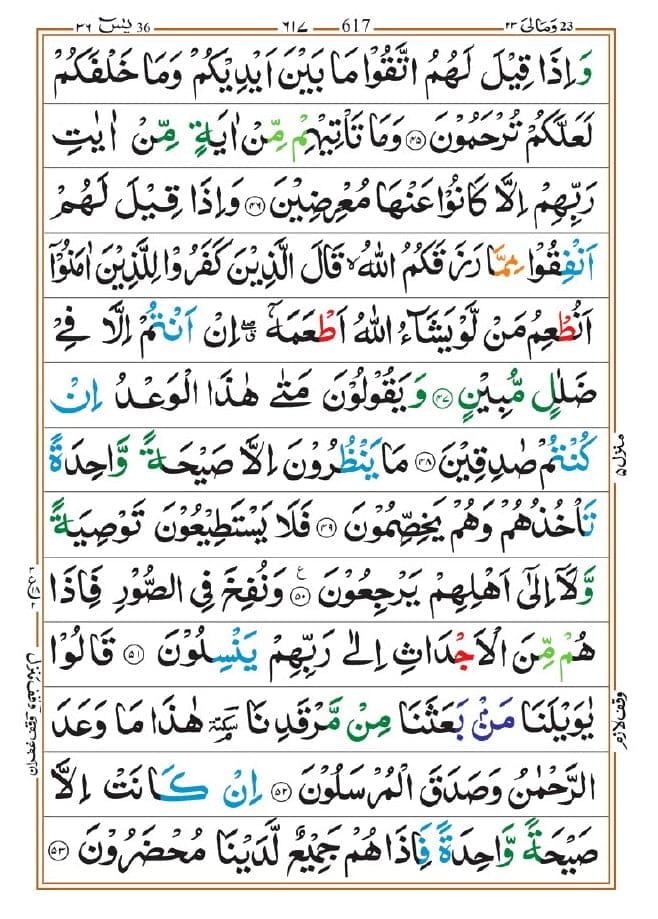 يٰسٓ ٣٦ 36 ٦١٧ 617 وَمَالِىَ ٢٣ 23
وَاِذَا قِيْلَ لَهُمُ اتَّقُوْا مَا بَيْنَ اَيْدِيْكُمْ وَمَا خَلْفَكُمْ
لَعَلَّكُمْ تُرْحَمُوْنَ ﴿٤٥﴾ وَمَا تَاْتِيْهِمْ مِّنْ اٰيَةٍ مِّنْ اٰيٰتِ
رَبِّهِمْ اِلَّا كَانُوْا عَنْهَا مُعْرِضِيْنَ ﴿٤٦﴾ وَاِذَا قِيْلَ لَهُمْ
اَنْفِقُوْا مِمَّا رَزَقَكُمُ اللّٰهُ ۙ قَالَ الَّذِيْنَ كَفَرُوْا لِلَّذِيْنَ اٰمَنُوْۤا
اَنُطْعِمُ مَنْ لَّوْ يَشَآءُ اللّٰهُ اَطْعَمَهٗۤ ۖ اِنْ اَنْتُمْ اِلَّا فِيْ
ضَلٰلٍ مُّبِيْنٍ ﴿٤٧﴾ وَيَقُوْلُوْنَ مَتٰى هٰذَا الْوَعْدُ اِنْ
كُنْتُمْ صٰدِقِيْنَ ﴿٤٨﴾ مَا يَنْظُرُوْنَ اِلَّا صَيْحَةً وَّاحِدَةً
تَاْخُذُهُمْ وَهُمْ يَخِصِّمُوْنَ ﴿٤٩﴾ فَلَا يَسْتَطِيْعُوْنَ تَوْصِيَةً
وَّلَاۤ اِلٰۤى اَهْلِهِمْ يَرْجِعُوْنَ ﴿٥٠﴾ ع وَنُفِخَ فِي الصُّوْرِ فَاِذَا
هُمْ مِّنَ الْاَجْدَاثِ اِلٰى رَبِّهِمْ يَنْسِلُوْنَ ﴿٥١﴾ قَالُوْا
يٰوَيْلَنَا مَنْۢ بَعَثَنَا مِنْ مَّرْقَدِنَا ۜ سكتة هٰذَا مَا وَعَدَ
الرَّحْمٰنُ وَصَدَقَ الْمُرْسَلُوْنَ ﴿٥٢﴾ اِنْ كَانَتْ اِلَّا
صَيْحَةً وَّاحِدَةً فَاِذَا هُمْ جَمِيْعٌ لَّدَيْنَا مُحْضَرُوْنَ ﴿٥٣﴾
منزل ٥
وقف لازم
وقف غفران